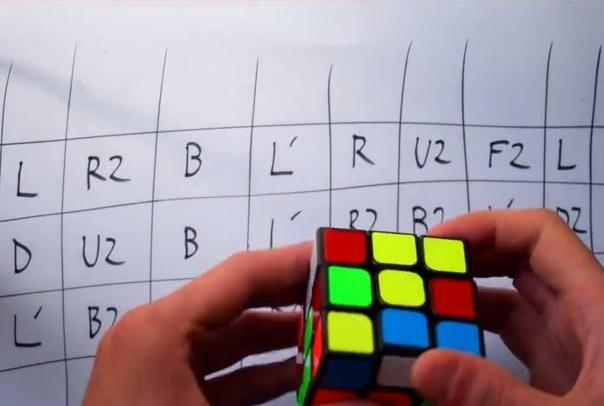 L R2 B L' R U2 F2 L
D U2 B L' R2 B2
L' B2